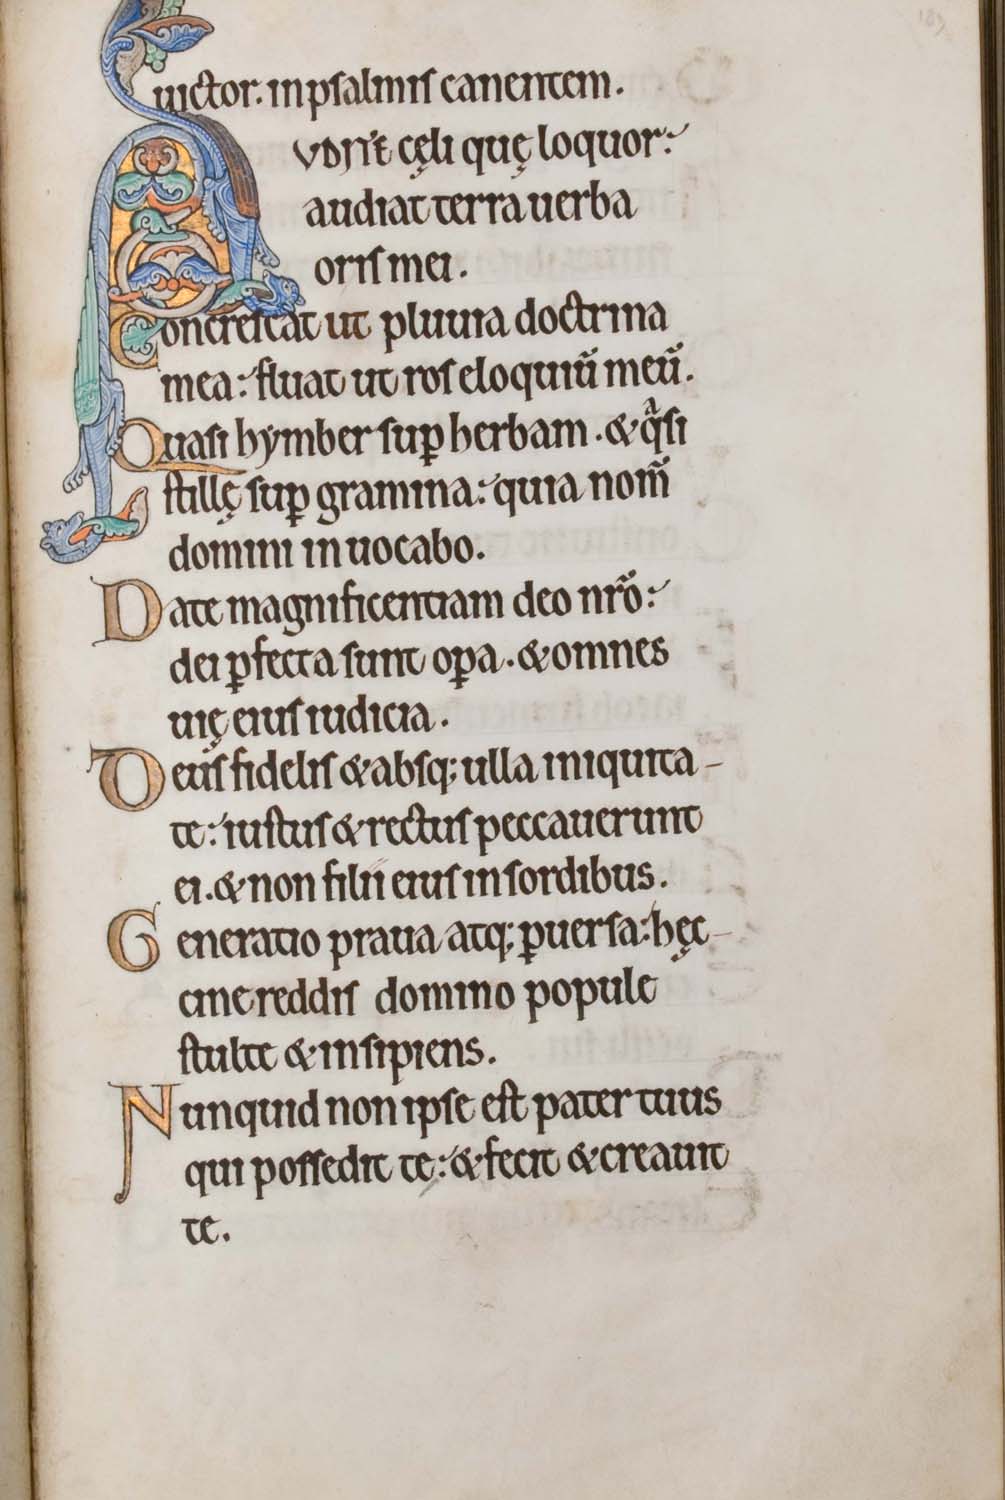 uictor. in psalmis canentem.
AUDITE cęli quę loquor:
audiat terra uerba
oris mei.
Concrescat ut pluuia doctrina
mea: fluat ut ros eloquiū meū.
Quasi hymber suꝑ herbam. & qͣsi
stillę suꝑ gramina: quia nom̄
domini inuocabo.
Date magnificentiam deo nr̄o:
dei ꝑfecta sunt oꝑa. & omnes
uię eius iudicia.
Deus fidelis & absq; ulla iniquita-
te: iustus & rectus peccauerunt
ei. & non filii eius in sordibus.
Generatio praua atq; ꝑuersa: hęc-
cine reddis domino popule
stulte & insipiens.
Nunquid non ipse est pater tuus
qui possedit te: & fecit & creauit
te.